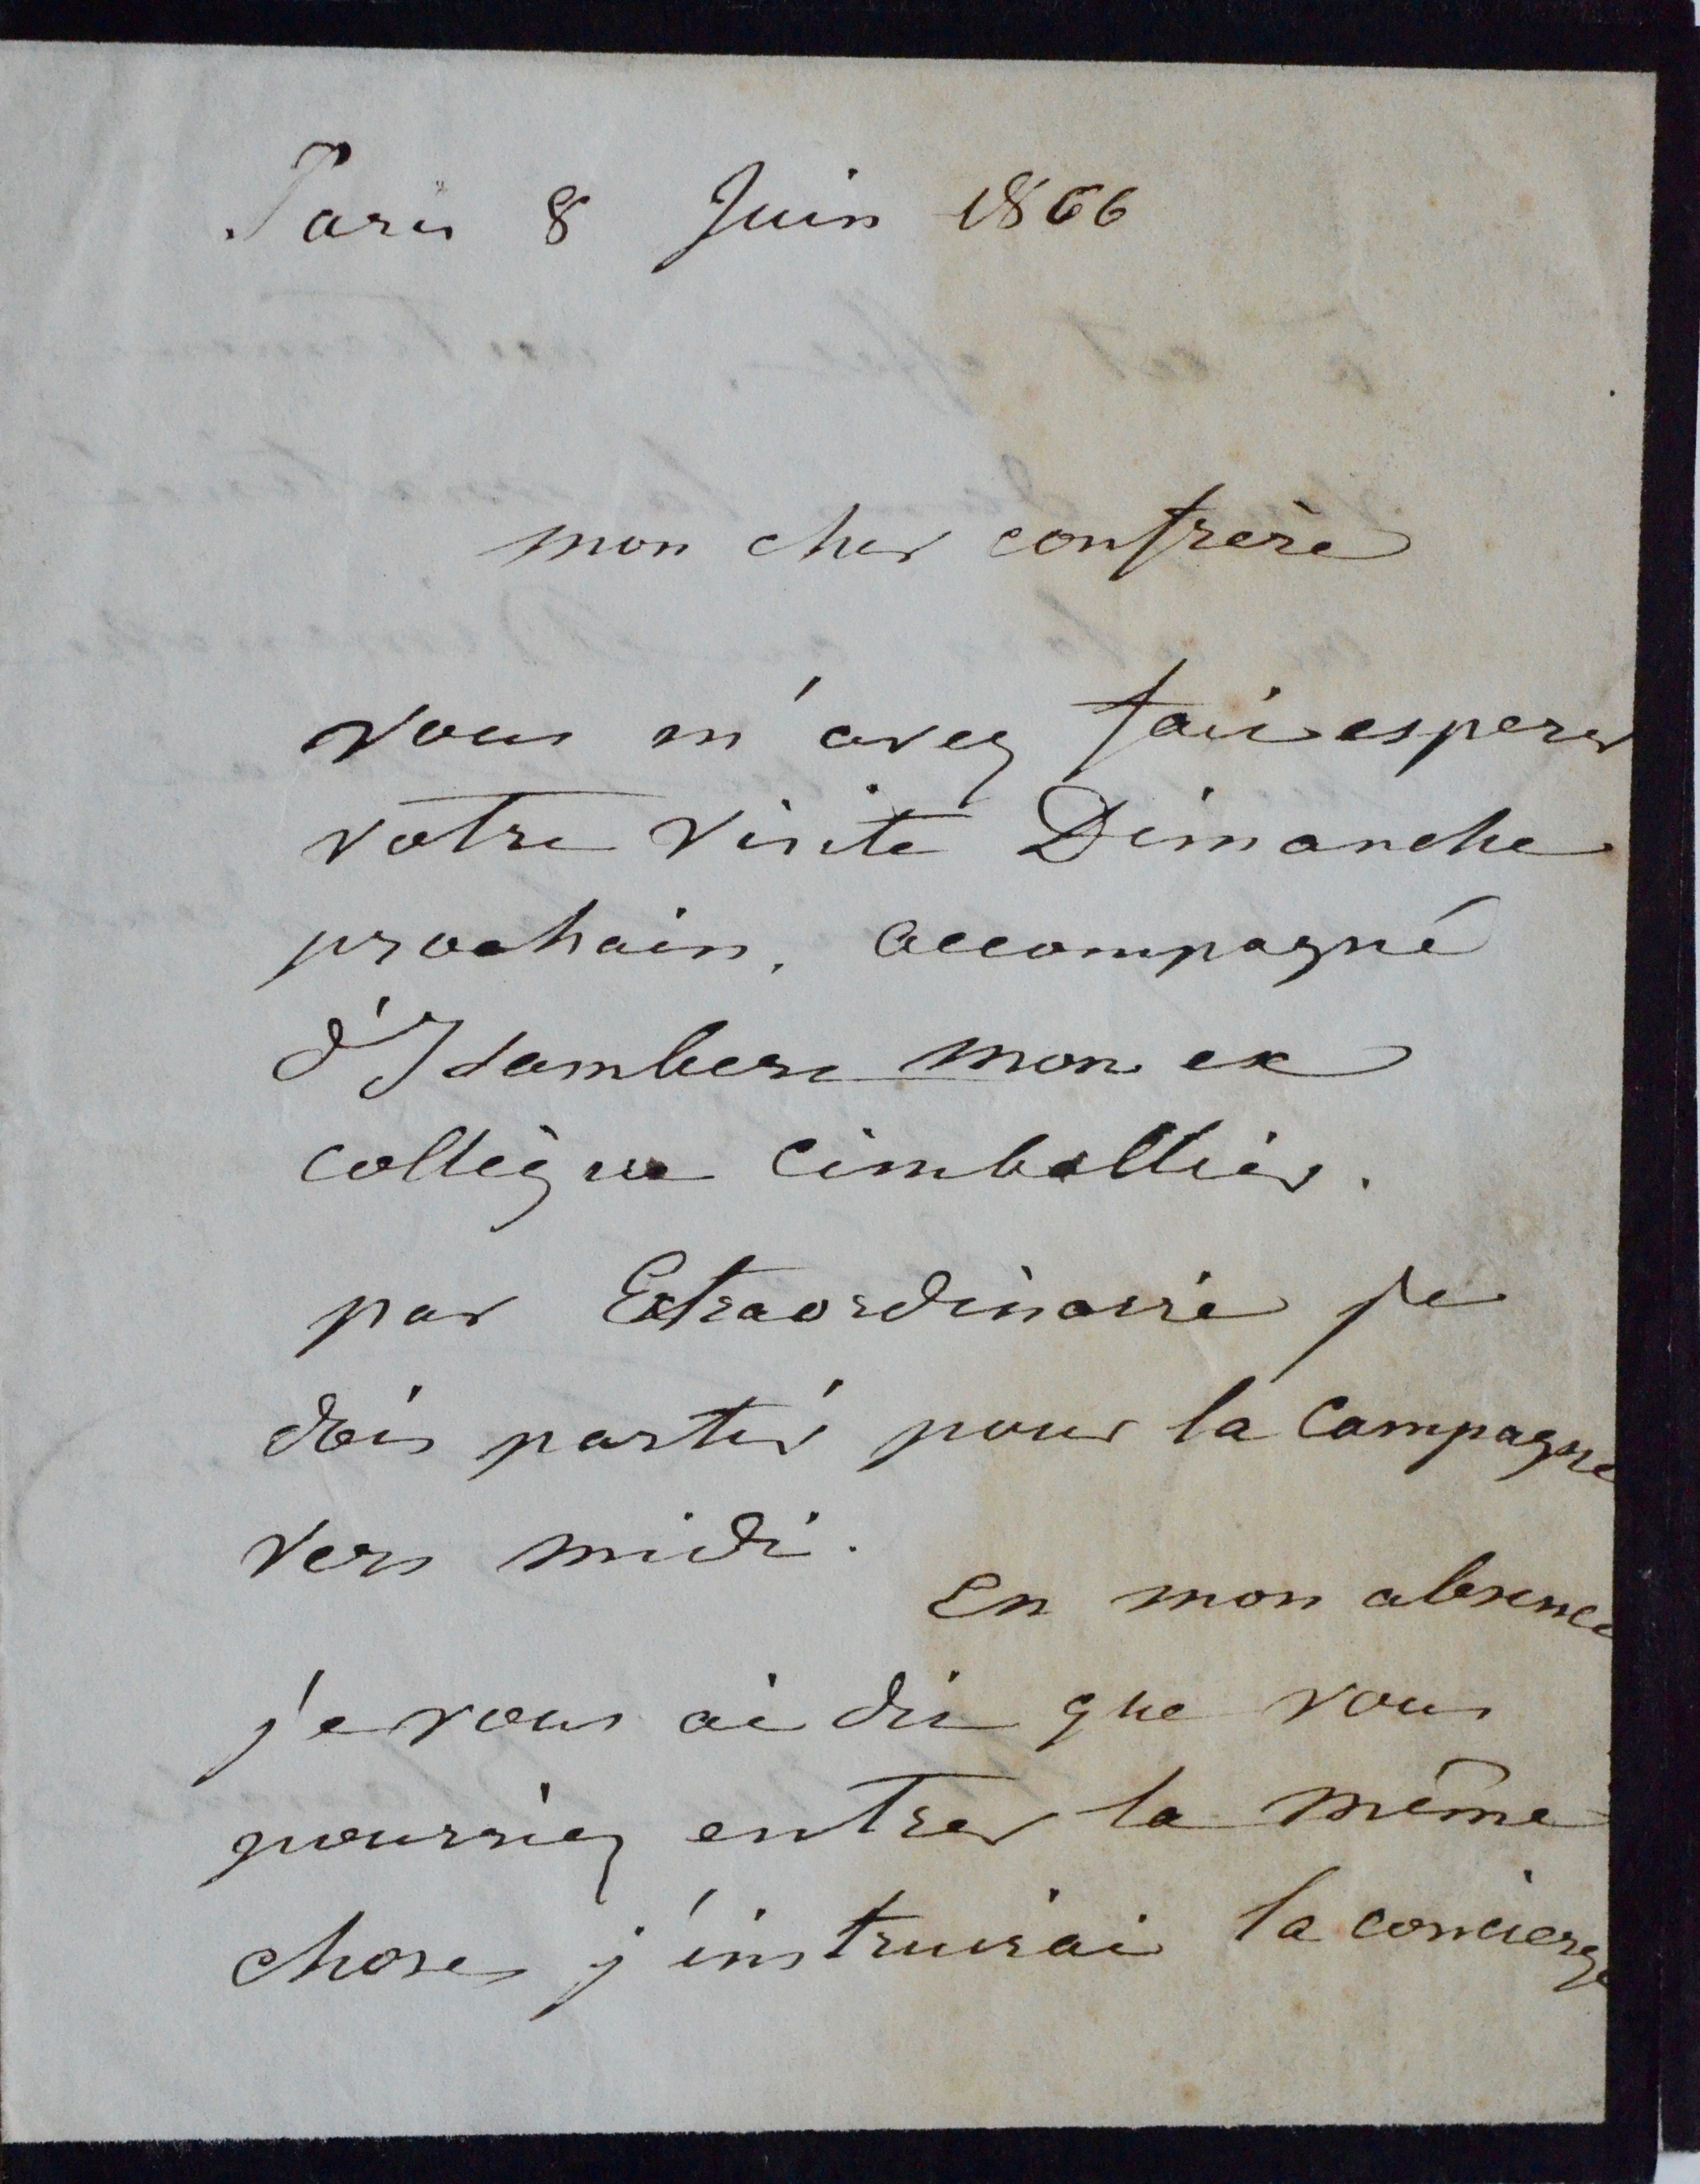 Paris 8 Juin 1866
mon cher confrère
vous m'avez fait esperer
votre visite Dimanche
prochain, accompagné
mon ex
collègue cimballier.
par Extraordinaire je
dois partir pour la Campagne
vers midi.
En mon absence
je vous ai dit que vous
pourriez entrer la même
chose, j'instruirai la concierge